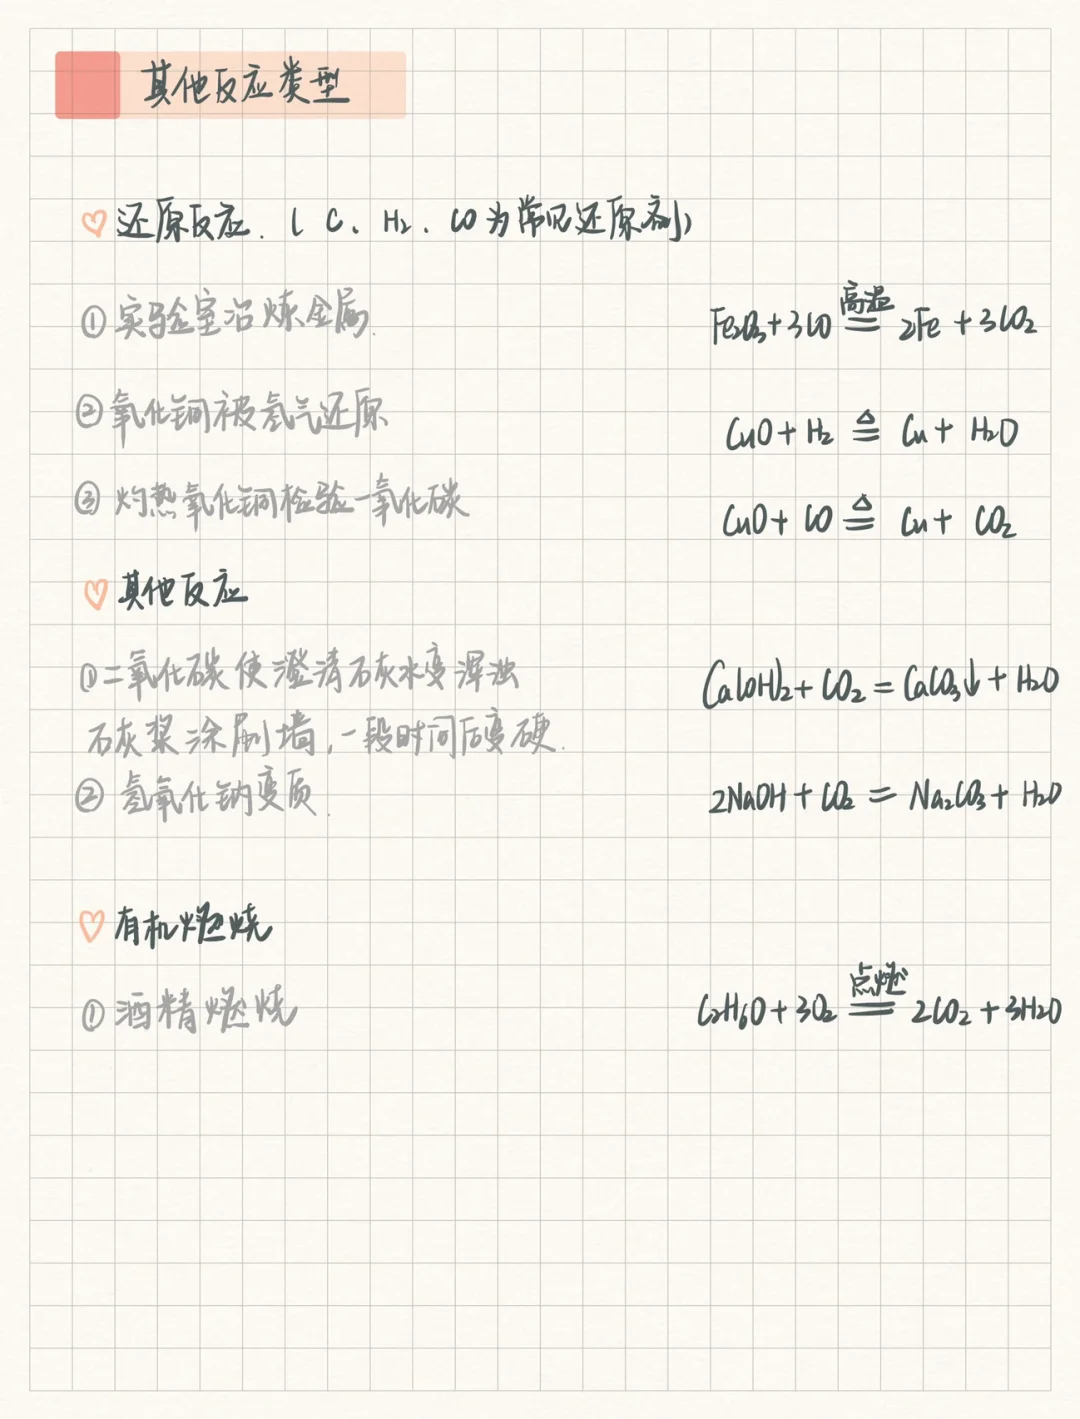 其他反应类型
还原反应.(C、H₂、CO为常见还原剂)
①实验室冶炼金属. Fe₂O₃+3CO 高温═ 2Fe+3CO₂
②氧化铜被氢气还原 CuO+H₂ △═ Cu+H₂O
③灼热氧化铜检验一氧化碳 CuO+CO △═ Cu+CO₂
其他反应
①二氧化碳使澄清石灰水变浑浊 Ca(OH)₂+CO₂=CaCO₃↓+H₂O
石灰浆涂刷墙,一段时间后变硬.
②氢氧化钠变质. 2NaOH+CO₂=Na₂CO₃+H₂O
有机燃烧
①酒精燃烧 C₂H₆O+3O₂ 点燃═ 2CO₂+3H₂O